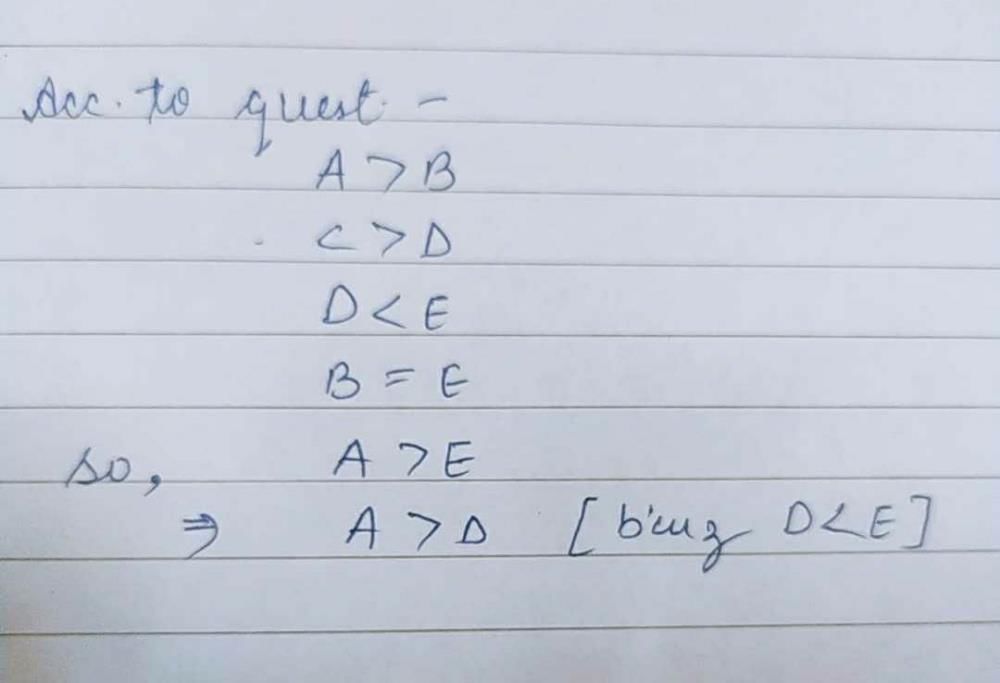 Acc. to quest. -
A > B
C > D
D < E
B = E
so, A > E
⇒ A > D [b'cuz D < E]